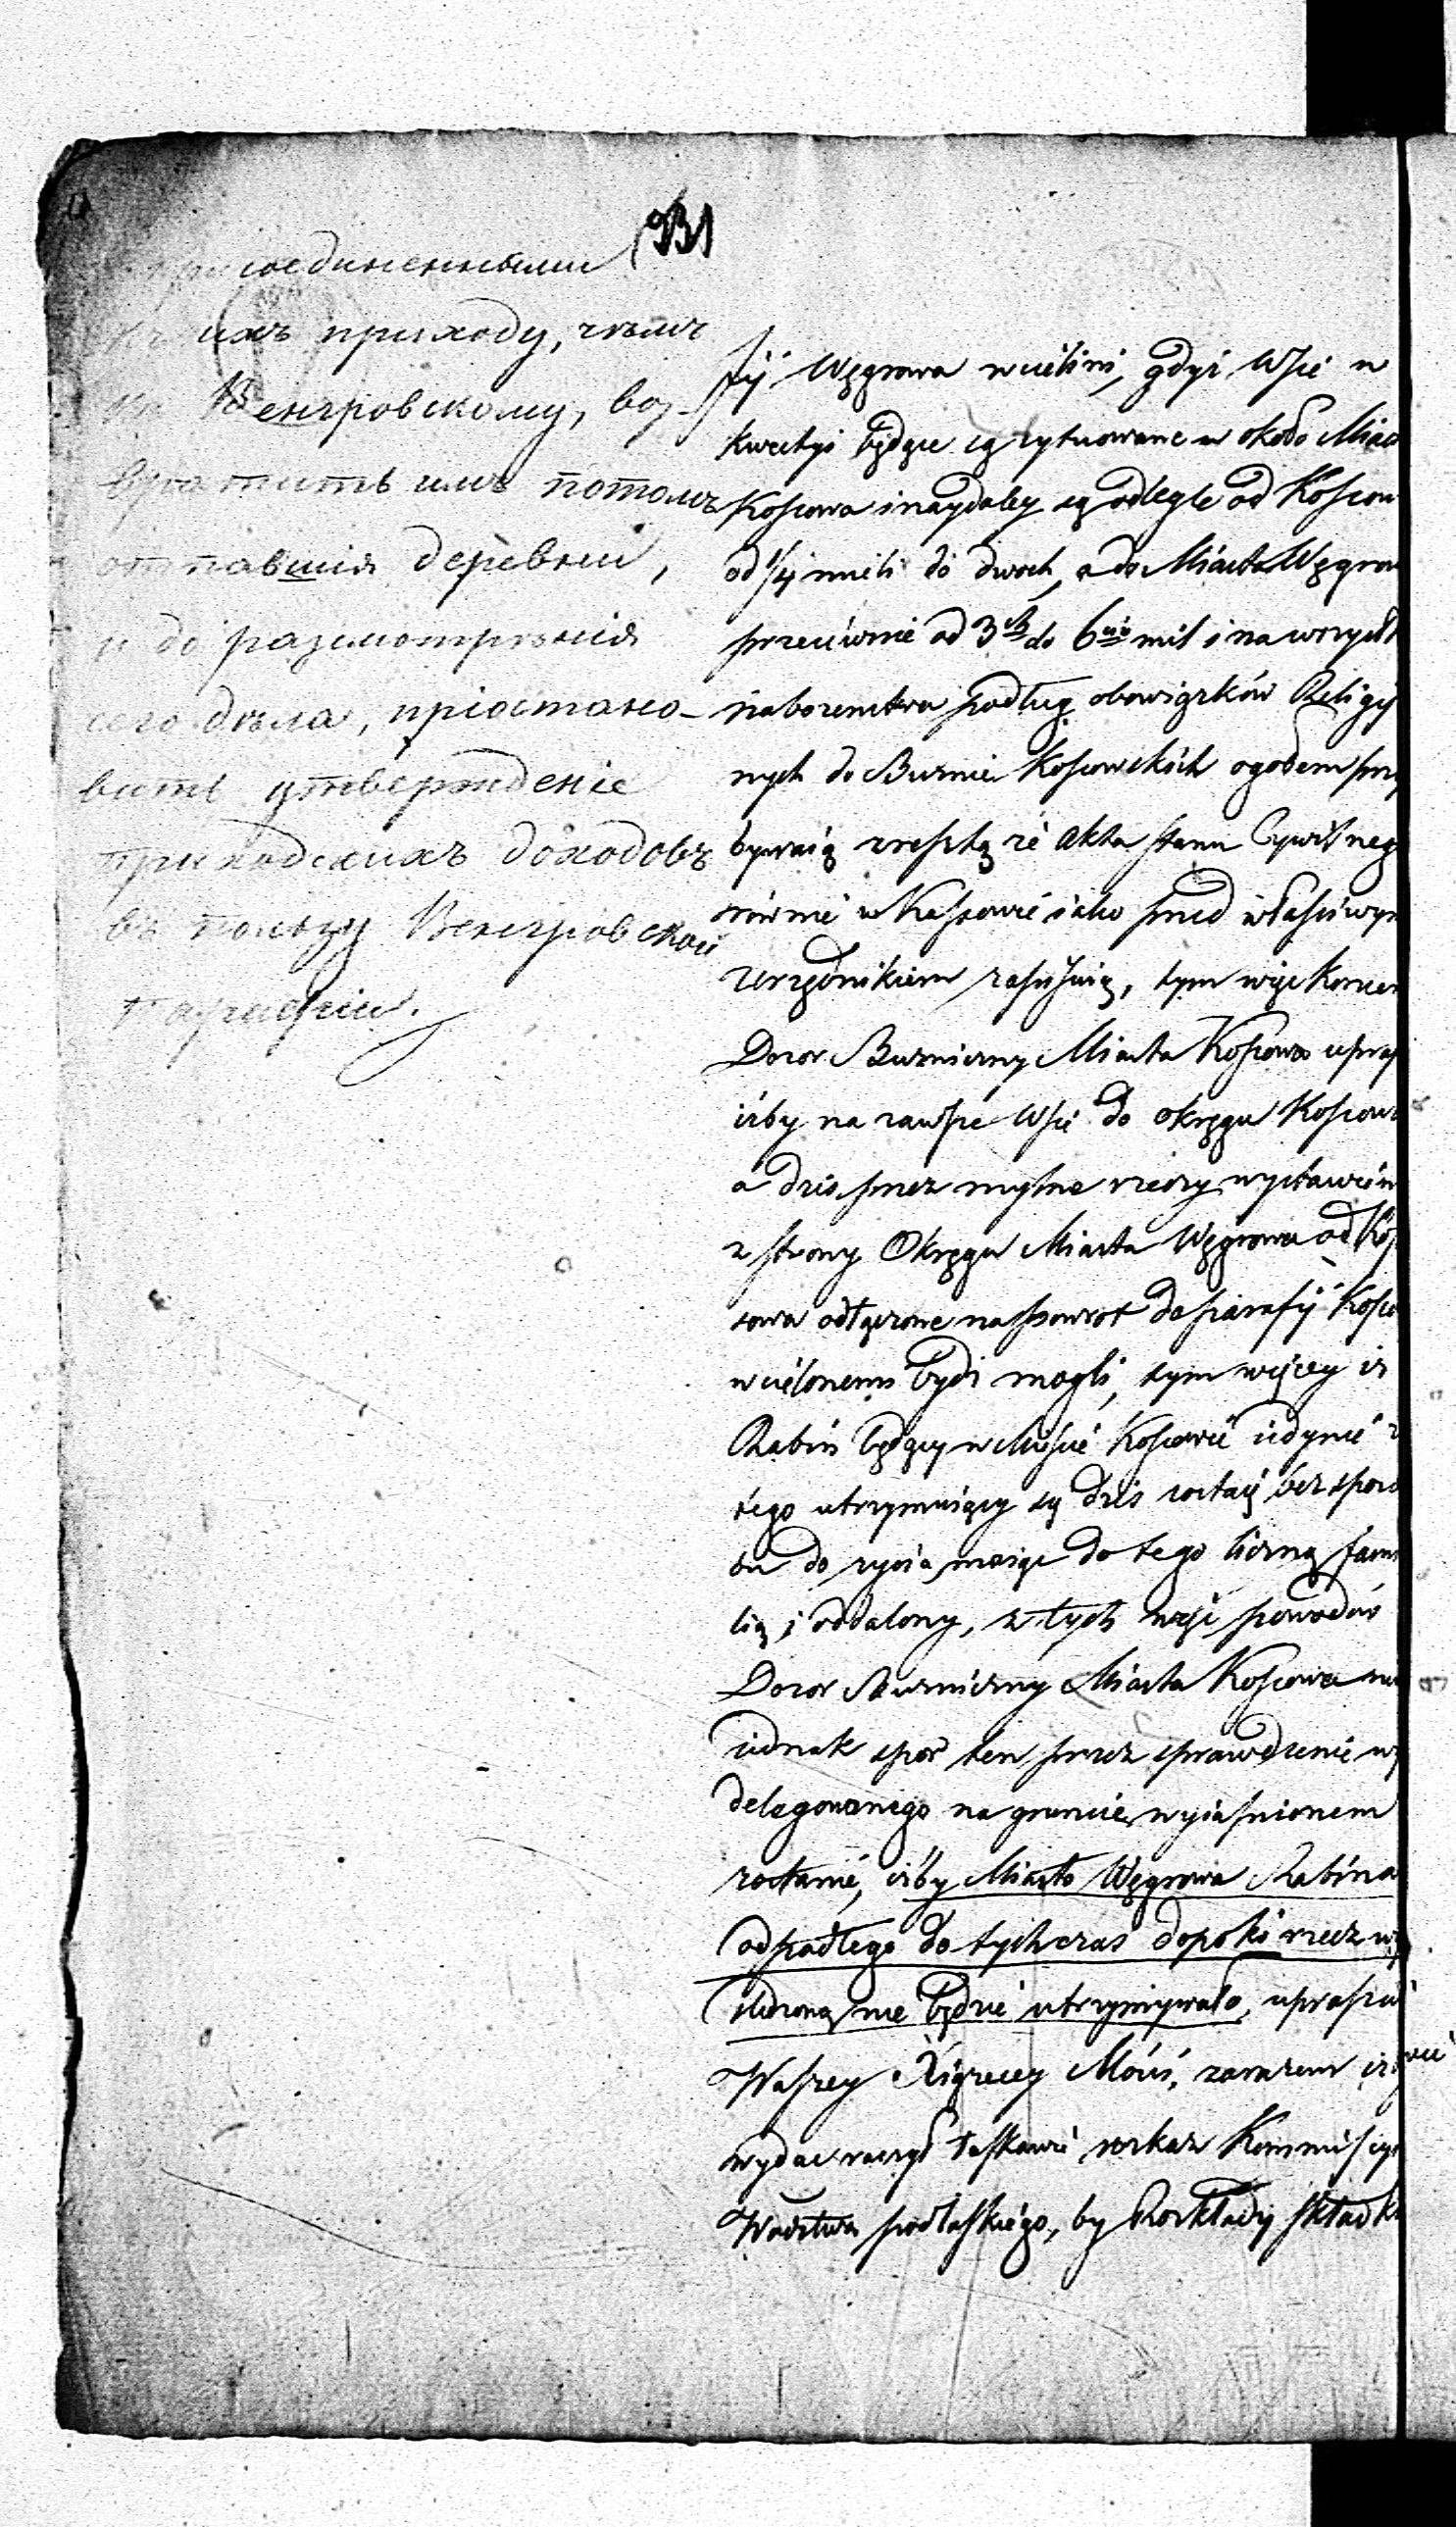 931
присоединенными
къ ихъ приходу, чѣмъ
къ Венгровскому, воз-
вратить имъ потомъ
отпавшія деревни,
и до разсмотрѣнія
сего дѣла, пріостано-
вить утвержденіе
приходскихъ доходовъ
въ пользу Венгровской
Парафіи.
fij Węgrowa wcielini, gdyż Wsie w
kwestyi będące są sytuowane w około Mias
Kossowa i naydaley są odległe od Kossow
od mili do dwoch, a do Miasta Węgrow
przeciwnie od 3ch do 6ciu mil i na wszystk
nabozenstwa podług obowiązków Religij
nych do Buznic Kossowskich ogółem przy
bywaią zresztą że Akta stanu Cywilneg
rownie w Kossowie iako przed właściwym
Urzędnikiem zapisuią, tym więc koncem
Dozor Buzniczny Miasta Kossowa uprasz
iżby na zawsze Wsie do okręgu Kossow
a dzis przez mylne rzeczy wystawien
z strony Okręgu Miasta Węgrowa od Kos
sowa odłączone naspowrot do parafij Kosso
wcielonemi bydź mogli, tym więcey iż
Rabin będący w Mieście Kossowie iedynie z
tego utrzymuiący się dzis zostaię bez sposo
bu do zycia maiąc do tego liczną fami
lią i oddalony, z tych więc powodów
Dozor Buzniczny Miasta Kossowa nim
iednak spor ten przez sprawdzenie wy
delegowanego na gruncie wyiasnionem
zostanie, iżby Miasto Węgrowa Rabina
odpadłego do tychczas dopoki rzecz wy
sledzoną nie będzie utrzymywało, uprasza
Waszey Xiążęcey Mości, zarazem iżby
wydac raczył łaskawie rozkaz Kommissyi
Wodztwa podlaskiego, by Rozkłady składk